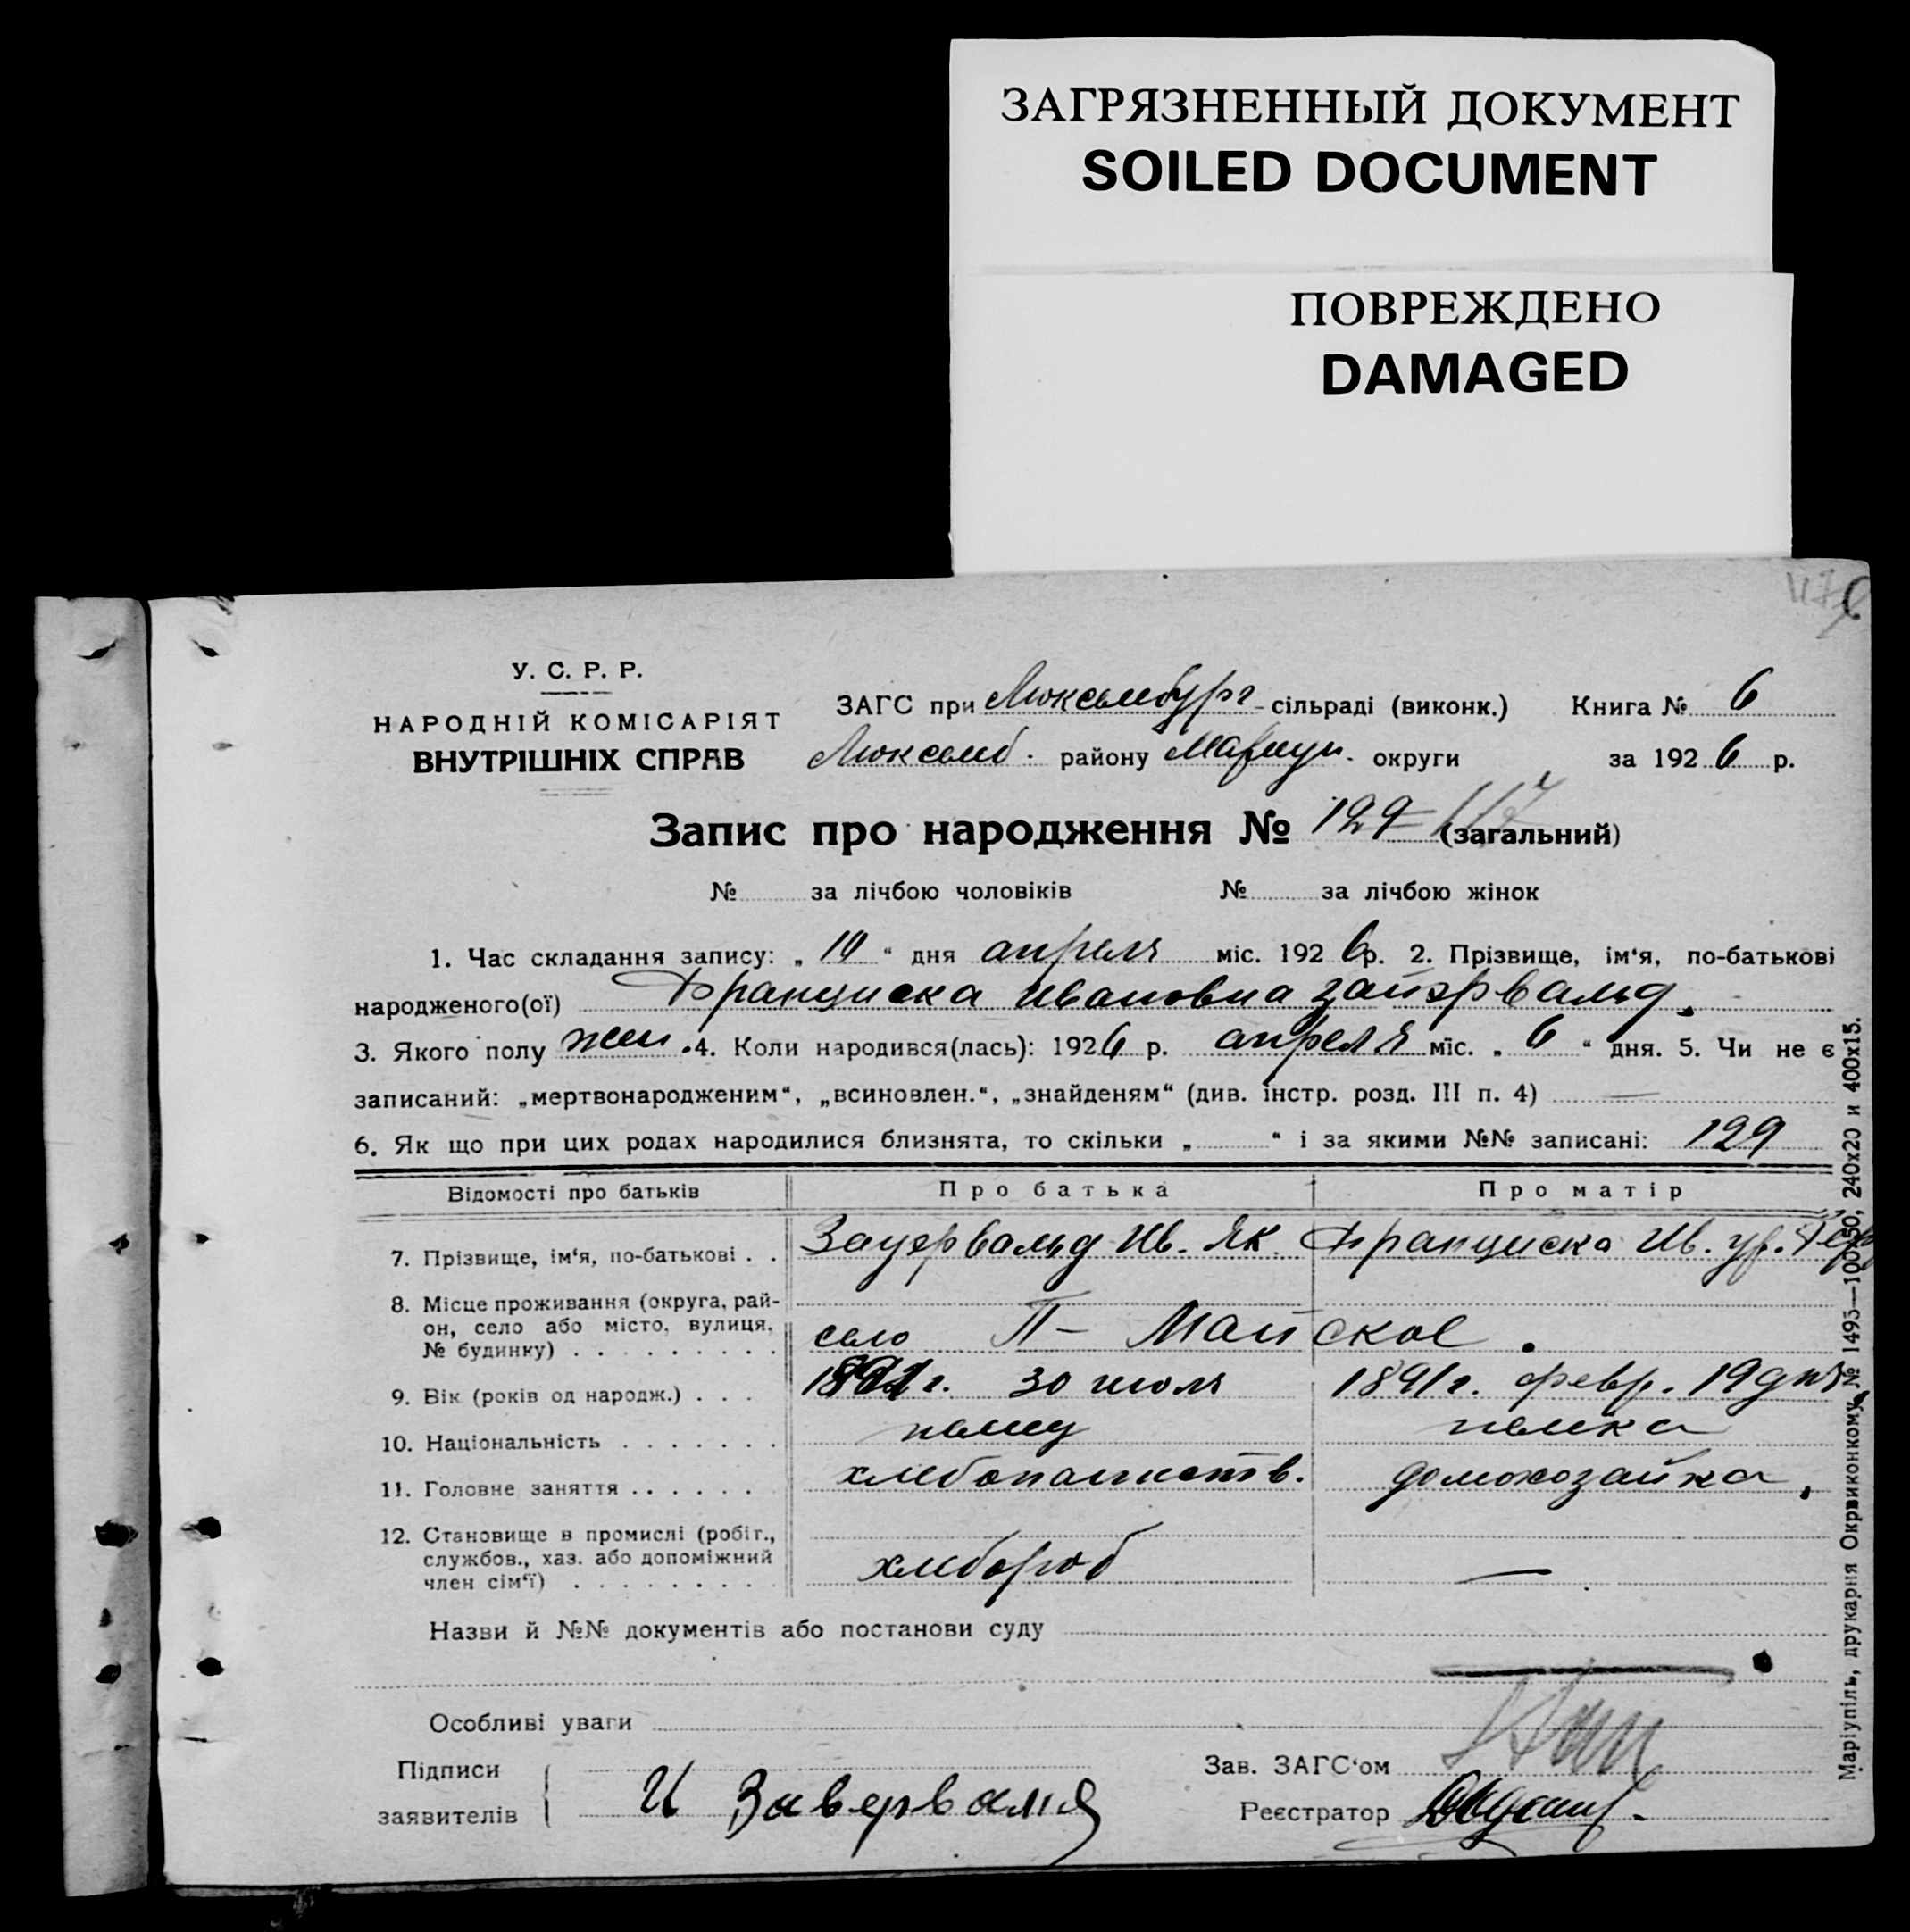 ЗАГРЯЗНЕННЫЙ ДОКУМЕНТ
SOILED DOCUMENT
ПОВРЕЖДЕНО
DAMAGED
У. С. Р. Р.
НАРОДНІЙ КОМІСАРІЯТ
ВНУТРІШНІХ СПРАВ
ЗАГС при Люксембург - сільраді (виконк.) Книга № 6
Люксемб. району Мариуп. округи за 1926 р.
Запис про народження № 129 117 (загальний)
№ за лічбою чоловіків № за лічбою жінок
1. Час складання запису: „ 10 “ дня апреля міс. 1926 р. 2. Прізвище, ім‘я, по-батькові
народженого(ої) Франциска Ивановна Зайэрвальд.
3. Якого полу жен. 4. Коли народився(лась): 1926 р. апреля міс. „ 6 “ дня. 5. Чи не є
записаний: „мертвонародженим“, „всиновлен.“, „знайденям“ (див. інстр. розд. III п. 4) —
6. Як що при цих родах народилися близнята, то скільки „ “ і за якими №№ записані: 129
Відомості про батьків Про батька Про матір
7. Прізвище, ім‘я, по-батькові . . Зауервальд Ив. Як. Франциска Ив. ур.
8. Місце проживання (округа, рай-
он, село або місто, вулиця, село П- Майское.
№ будинку) . . . . . . . . .
9. Вік (років од народж.) . . . г. 30 июля 1891 г. февр. 19 дня
10. Національність . . . . . . . немец немка
11. Головне заняття . . . . . . хлебопашеств. домохозайка,
12. Становище в промислі (робіт.,
службов., хаз. або допоміжний хлебороб —
член сім‘ї) . . . . . . . . .
Назви й №№ документів або постанови суду
Особливі уваги
Підписи Зав. ЗАГС‘ом
заявителів И Заверваля Реєстратор
Маріупіль, друкарня Окрвиконкому, № 1495—100×50, 240x20 и 400x15.